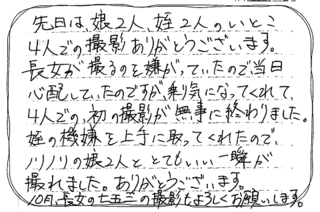 先日は、娘2人、姪2人のいとこ
4人での撮影ありがとうございます。
長女が撮るのを嫌がっていたので当日
心配していたのですが、乗り気になってくれて、
4人での、初の撮影が無事に終わりました。
姪の機嫌を上手に取ってくれたので、
ノリノリの娘2人と、とてもいい一瞬が
撮れました。ありがとうございます。
10月、長女の七五三の撮影もよろしくお願いします。